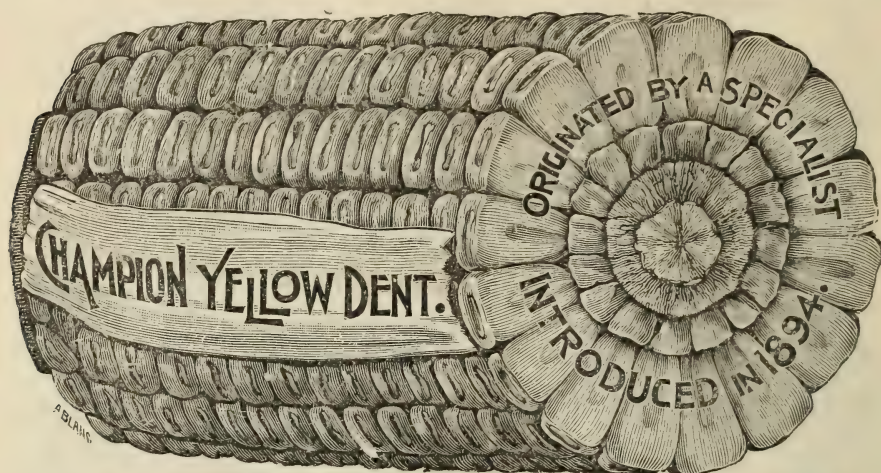 CHAMPION YELLOW DENT.
ORIGINATED BY A SPECIALIST
INTRODUCED IN 1894.
A BLANC.